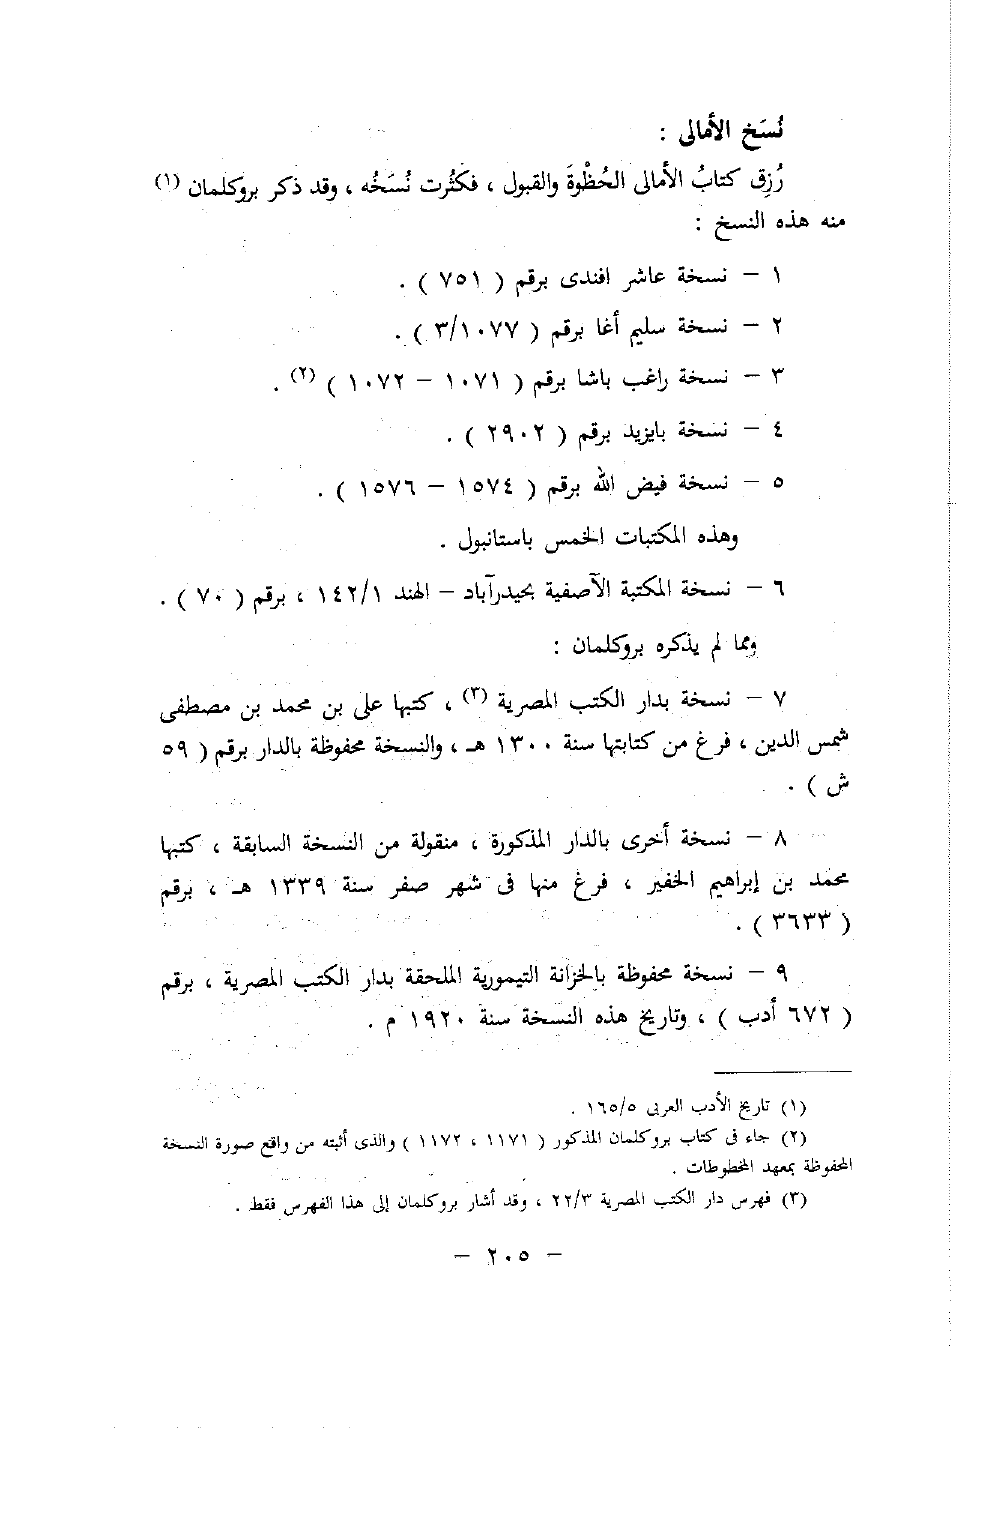 نُسَخ الأمالى :
رُزِق كتابُ الأمالى الحُظْوةَ والقبول ، فكثُرت نُسَخُه ، وقد ذكر بروكلمان (١)
منه هذه النسخ :
١ – نسخة عاشر افندى برقم ( ٧٥١ ) .
٢ – نسخة سليم أغا برقم ( ٣/١٠٧٧ ) .
٣ – نسخة راغب باشا برقم ( ١٠٧١ – ١٠٧٢ ) (٢) .
٤ – نسخة بايزيد برقم ( ٢٩٠٢ ) .
٥ – نسخة فيض الله برقم ( ١٥٧٤ – ١٥٧٦ ) .
وهذه المكتبات الخمس باستانبول .
٦ – نسخة المكتبة الآصفية بحيدرآباد – الهند ١٤٢/١ ، برقم ( ٧٠ ) .
ومما لم يذكره بروكلمان :
٧ – نسخة بدار الكتب المصرية (٣) ، كتبها على بن محمد بن مصطفى
شمس الدين ، فرغ من كتابتها سنة ١٣٠٠ هـ ، والنسخة محفوظة بالدار برقم ( ٥٩
ش ) .
٨ – نسخة أخرى بالدار المذكورة ، منقولة من النسخة السابقة ، كتبها
محمد بن إبراهيم الخفير ، فرغ منها فى شهر صفر سنة ١٣٣٩ هـ ، برقم
( ٣٦٣٣ ) .
٩ – نسخة محفوظة بالخزانة التيمورية الملحقة بدار الكتب المصرية ، برقم
( ٦٧٢ أدب ) ، وتاريخ هذه النسخة سنة ١٩٢٠ م .
(١) تاريخ الأدب العربى ١٦٥/٥ .
(٢) جاء فى كتاب بروكلمان المذكور ( ١١٧١ ، ١١٧٢ ) والذى أثبته من واقع صورة النسخة
المحفوظة بمعهد المخطوطات .
(٣) فهرس دار الكتب المصرية ٢٢/٣ ، وقد أشار بروكلمان إلى هذا الفهرس فقط .
– ٢٠٥ –